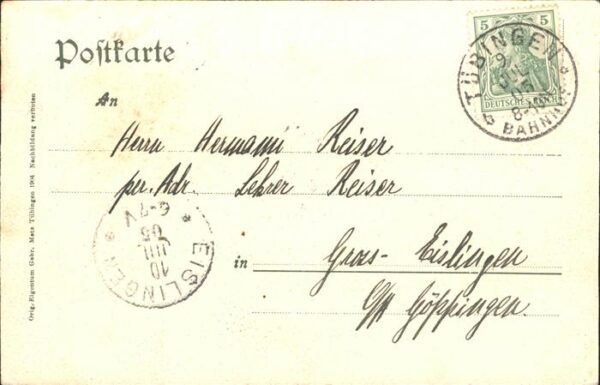 Postkarte
5 5
DEUTSCHES REICH
TÜBINGEN
9
JUL
05
8-10
BAHNHOF
An
Herrn Hermann Reiser
per. Adr. Lehrer Reiser
in Gross-Eislingen
O/A Göppingen.
EISLINGEN
10
JUL
05
6-7V
Orig.-Eigentum Gebr. Metz Tübingen 1904 Nachbildung verboten